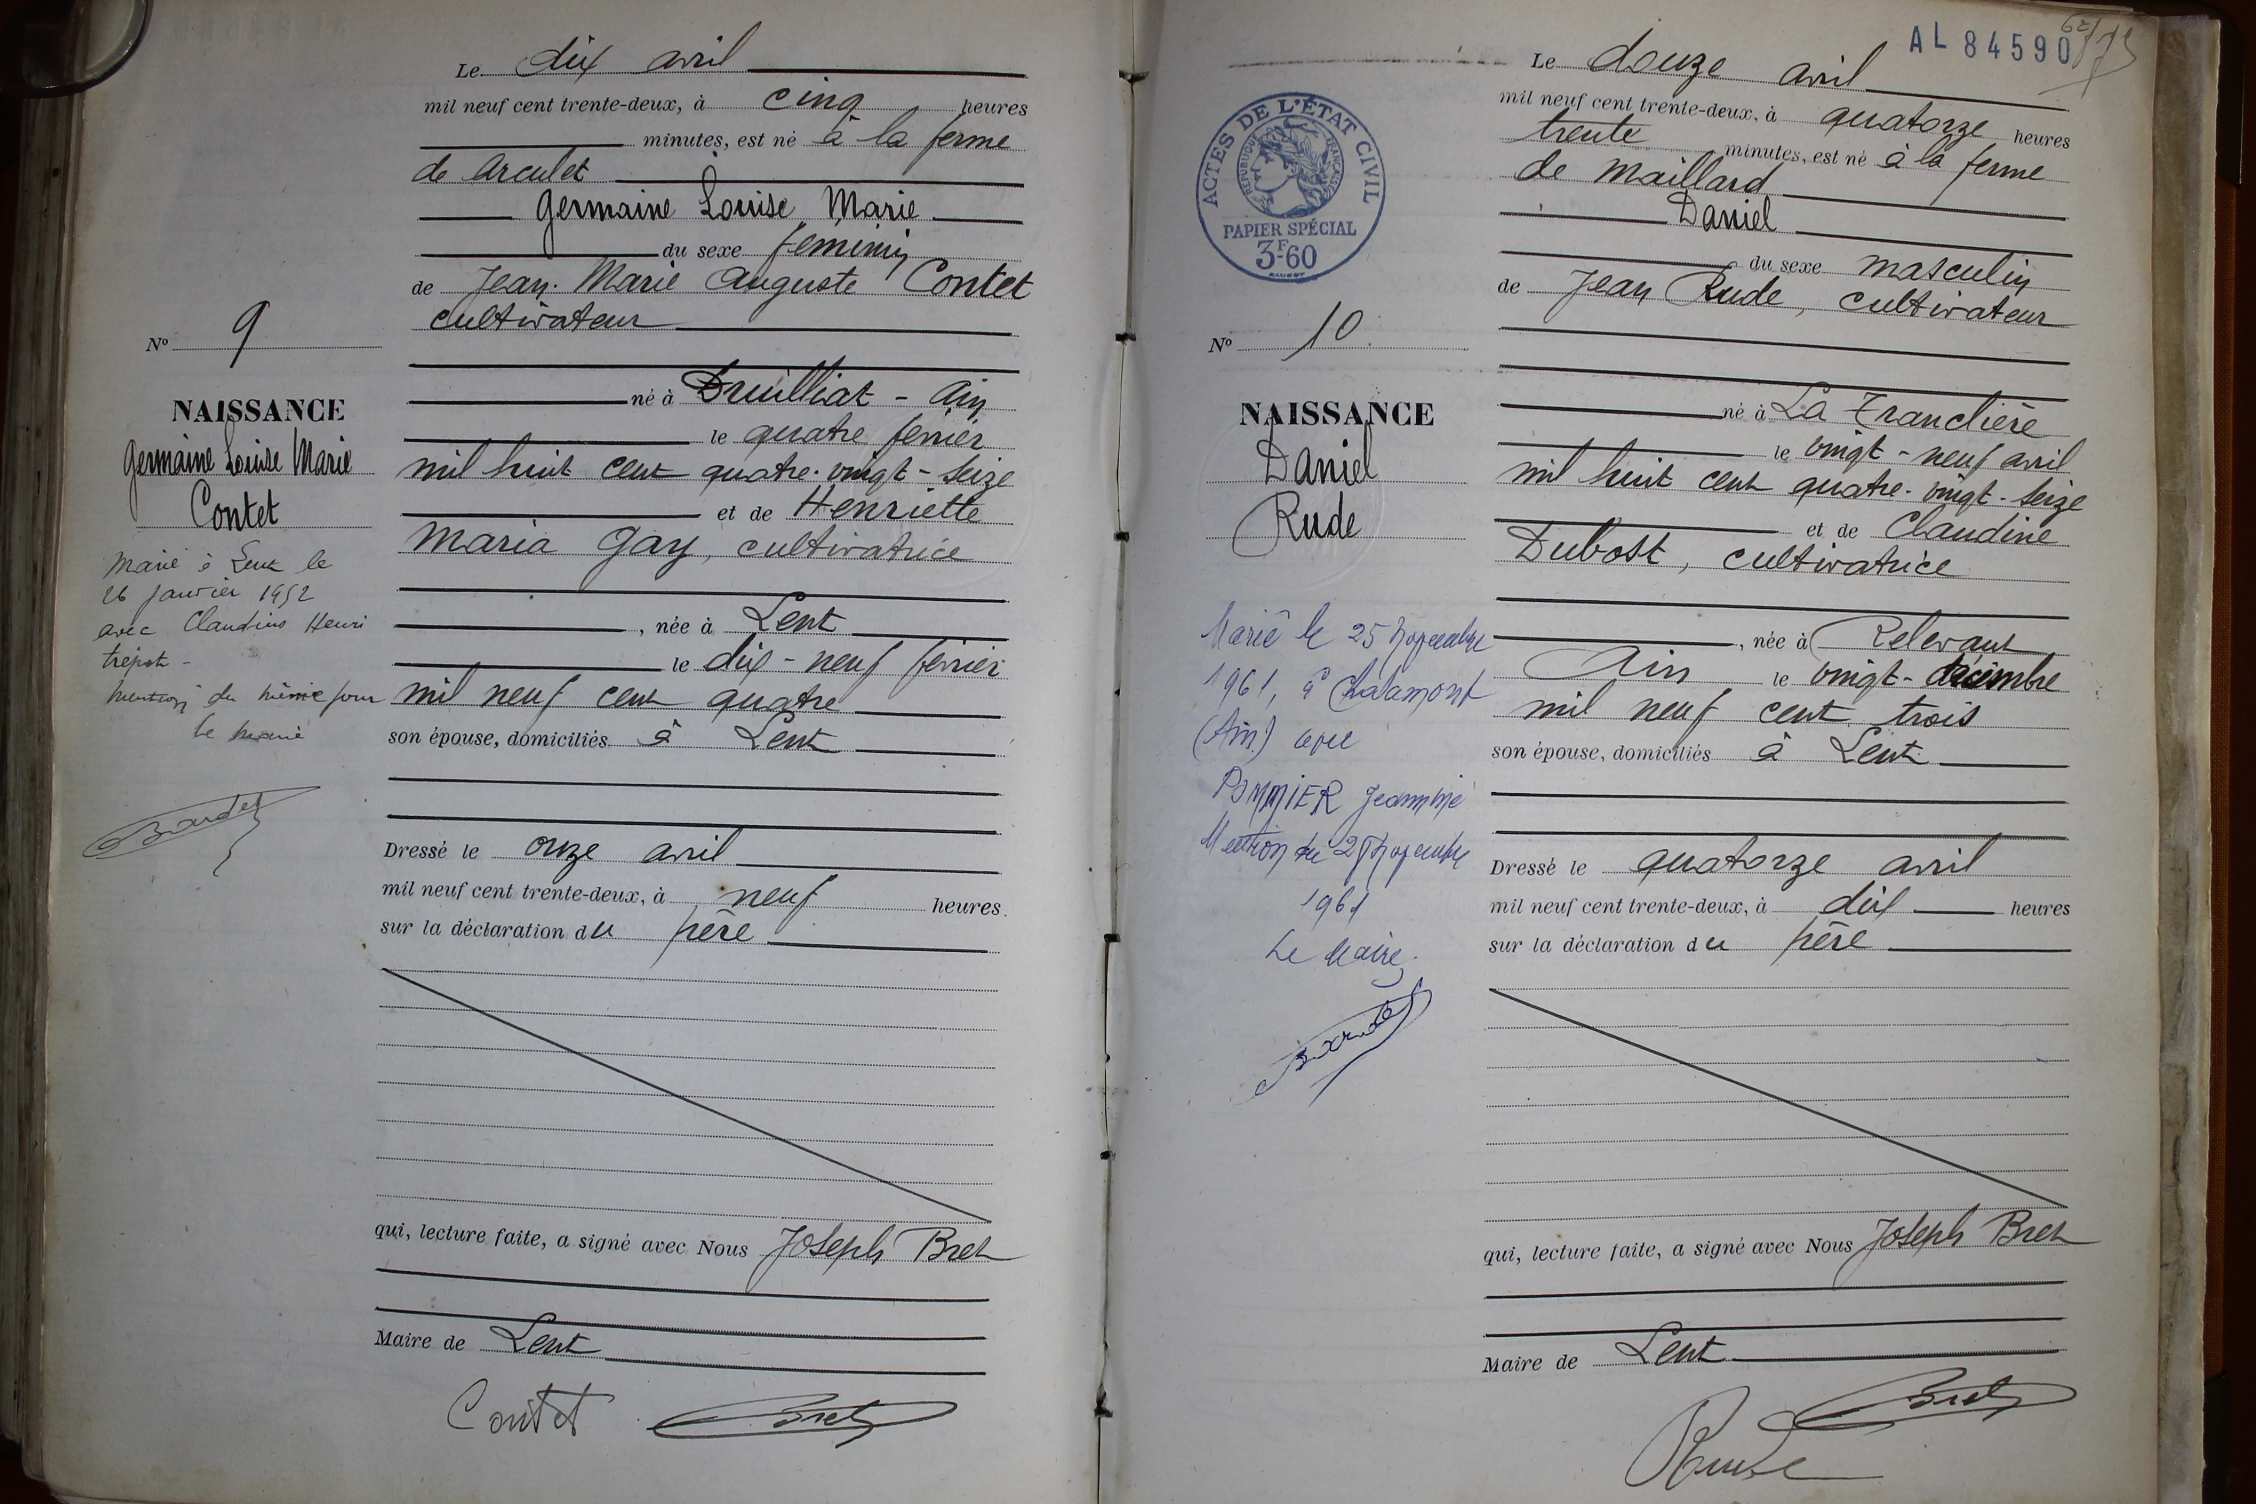 Le dix avril
mil neuf cent trente-deux, à cinq heures
minutes, est né à la ferme
de Arculet
Germaine Louise Marie
du sexe feminin
de Jean-Marie Auguste Contet
cultivateur
né à Druilliat - Ain
le quatre fevrier
mil huit cent quatre-vingt-seize
et de Henriette
Maria Gay, cultivatrice
, née à Lent
le dix-neuf février
mil neuf cent quatre
son épouse, domiciliés à Lent
Dressé le onze avril
mil neuf cent trente-deux, à neuf heures
sur la déclaration du père
qui, lecture faite, a signé avec Nous Joseph Bret
Maire de Lent
Contet Bret
N° 9
NAISSANCE
Germaine Louise Marie
Contet
Marié à Lent le
26 janvier 1952
avec Claudius Henri
Trépot -
Mention du même jour
le maire
Bardet
AL 84590
Le douze avril
mil neuf cent trente-deux, à quatorze heures
trente minutes, est né à la ferme
de Maillard
Daniel
du sexe masculin
de Jean Rude, cultivateur
né à La Tranclière
le vingt-neuf avril
mil huit cent quatre-vingt-seize
et de Claudine
Dubost, cultivatrice
, née à Relevant
Ain le vingt-décembre
mil neuf cent trois
son épouse, domiciliés à Lent
Dressé le quatorze avril
mil neuf cent trente-deux, à dix heures
sur la déclaration du père
qui, lecture faite, a signé avec Nous Joseph Bret
Maire de Lent
Bret
Rude
ACTES DE L'ÉTAT CIVIL
RÉPUBLIQUE FRANÇAISE
PAPIER SPÉCIAL
3F-60
N° 10.
NAISSANCE
Daniel
Rude
Marié le 25 Novembre
1961, à Chalamont
(Ain) avec
POMMIER Jeannine
Mention du Novembre
1961
Le Maire.
Bardet